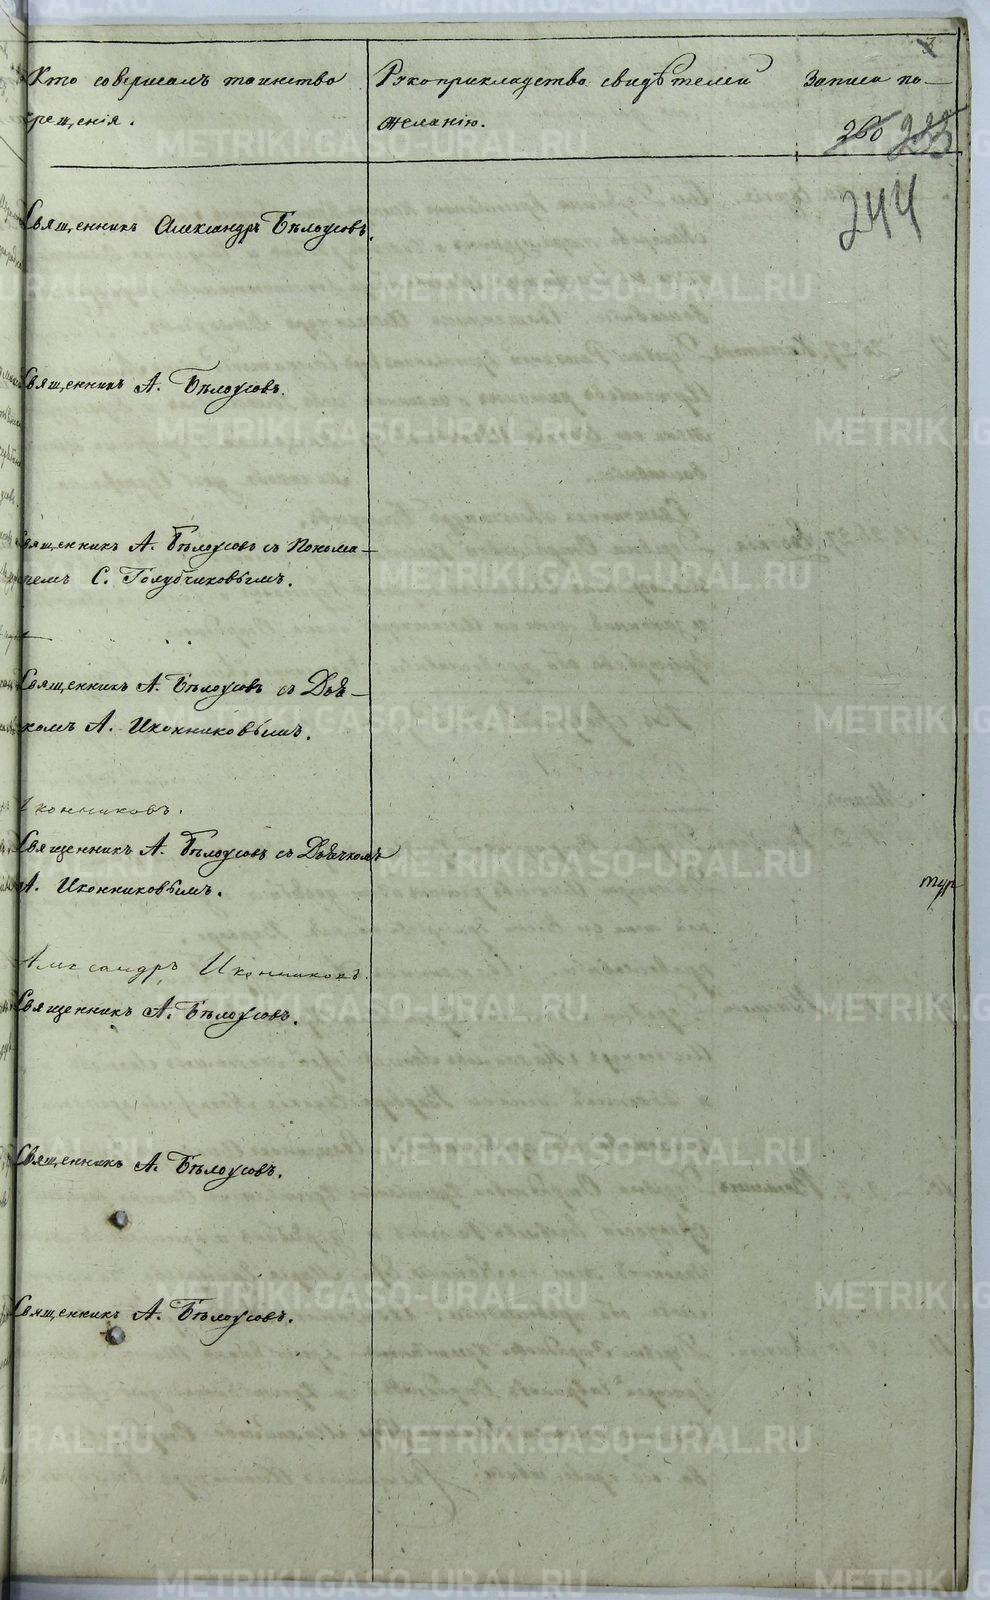 Кто совершалъ таинство
крещенія.
Рукоприкладство свидѣтелей
по желанію.
260 233
244
Священникъ Александръ Бѣлоусовъ.
Священникъ А. Бѣлоусовъ.
Священникъ А. Бѣлоусовъ съ Понома-
ремъ С. Голубчиковымъ.
Священникъ А. Бѣлоусовъ съ Дьяч-
комъ А. Иконниковымъ.
Иконниковъ.
Священникъ А. Бѣлоусовъ съ Дьячкомъ
А. Иконниковымъ.
Александръ Иконниковъ.
Священникъ А. Бѣлоусовъ.
Священникъ А. Бѣлоусовъ.
Священникъ А. Бѣлоусовъ.
METRIKI.GASO-URAL.RU